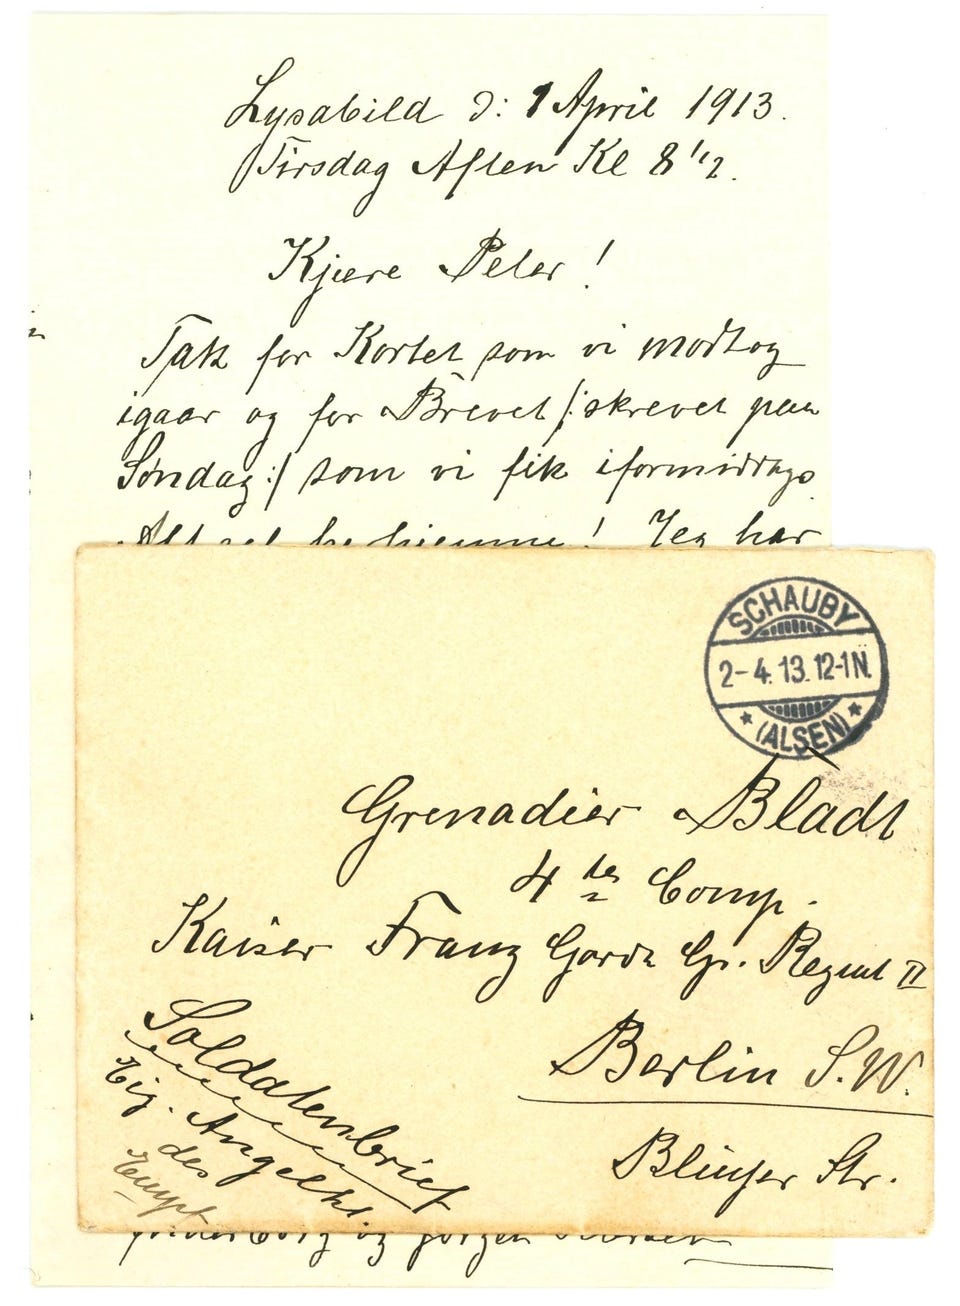 Lysabild d: 1 April 1913.
Tirsdag Aften Kl 8 1/2.
Kjære Peter!
Tak for Kortet som vi modtog
igaar og for Brevet /: skrevet paa
Søndag :/ som vi fik iformiddags.
Alt vel her hjemme! Jeg har
SCHAUBY
2-4.13.12-1N.
* (ALSEN) *
Grenadier Bladt
4 te Comp.
Kaiser Franz Garde Gr. Regmt II
Berlin S.W.
Str.
Soldatenbrief
Eig. Angelht
des
Empf
og Jørgen